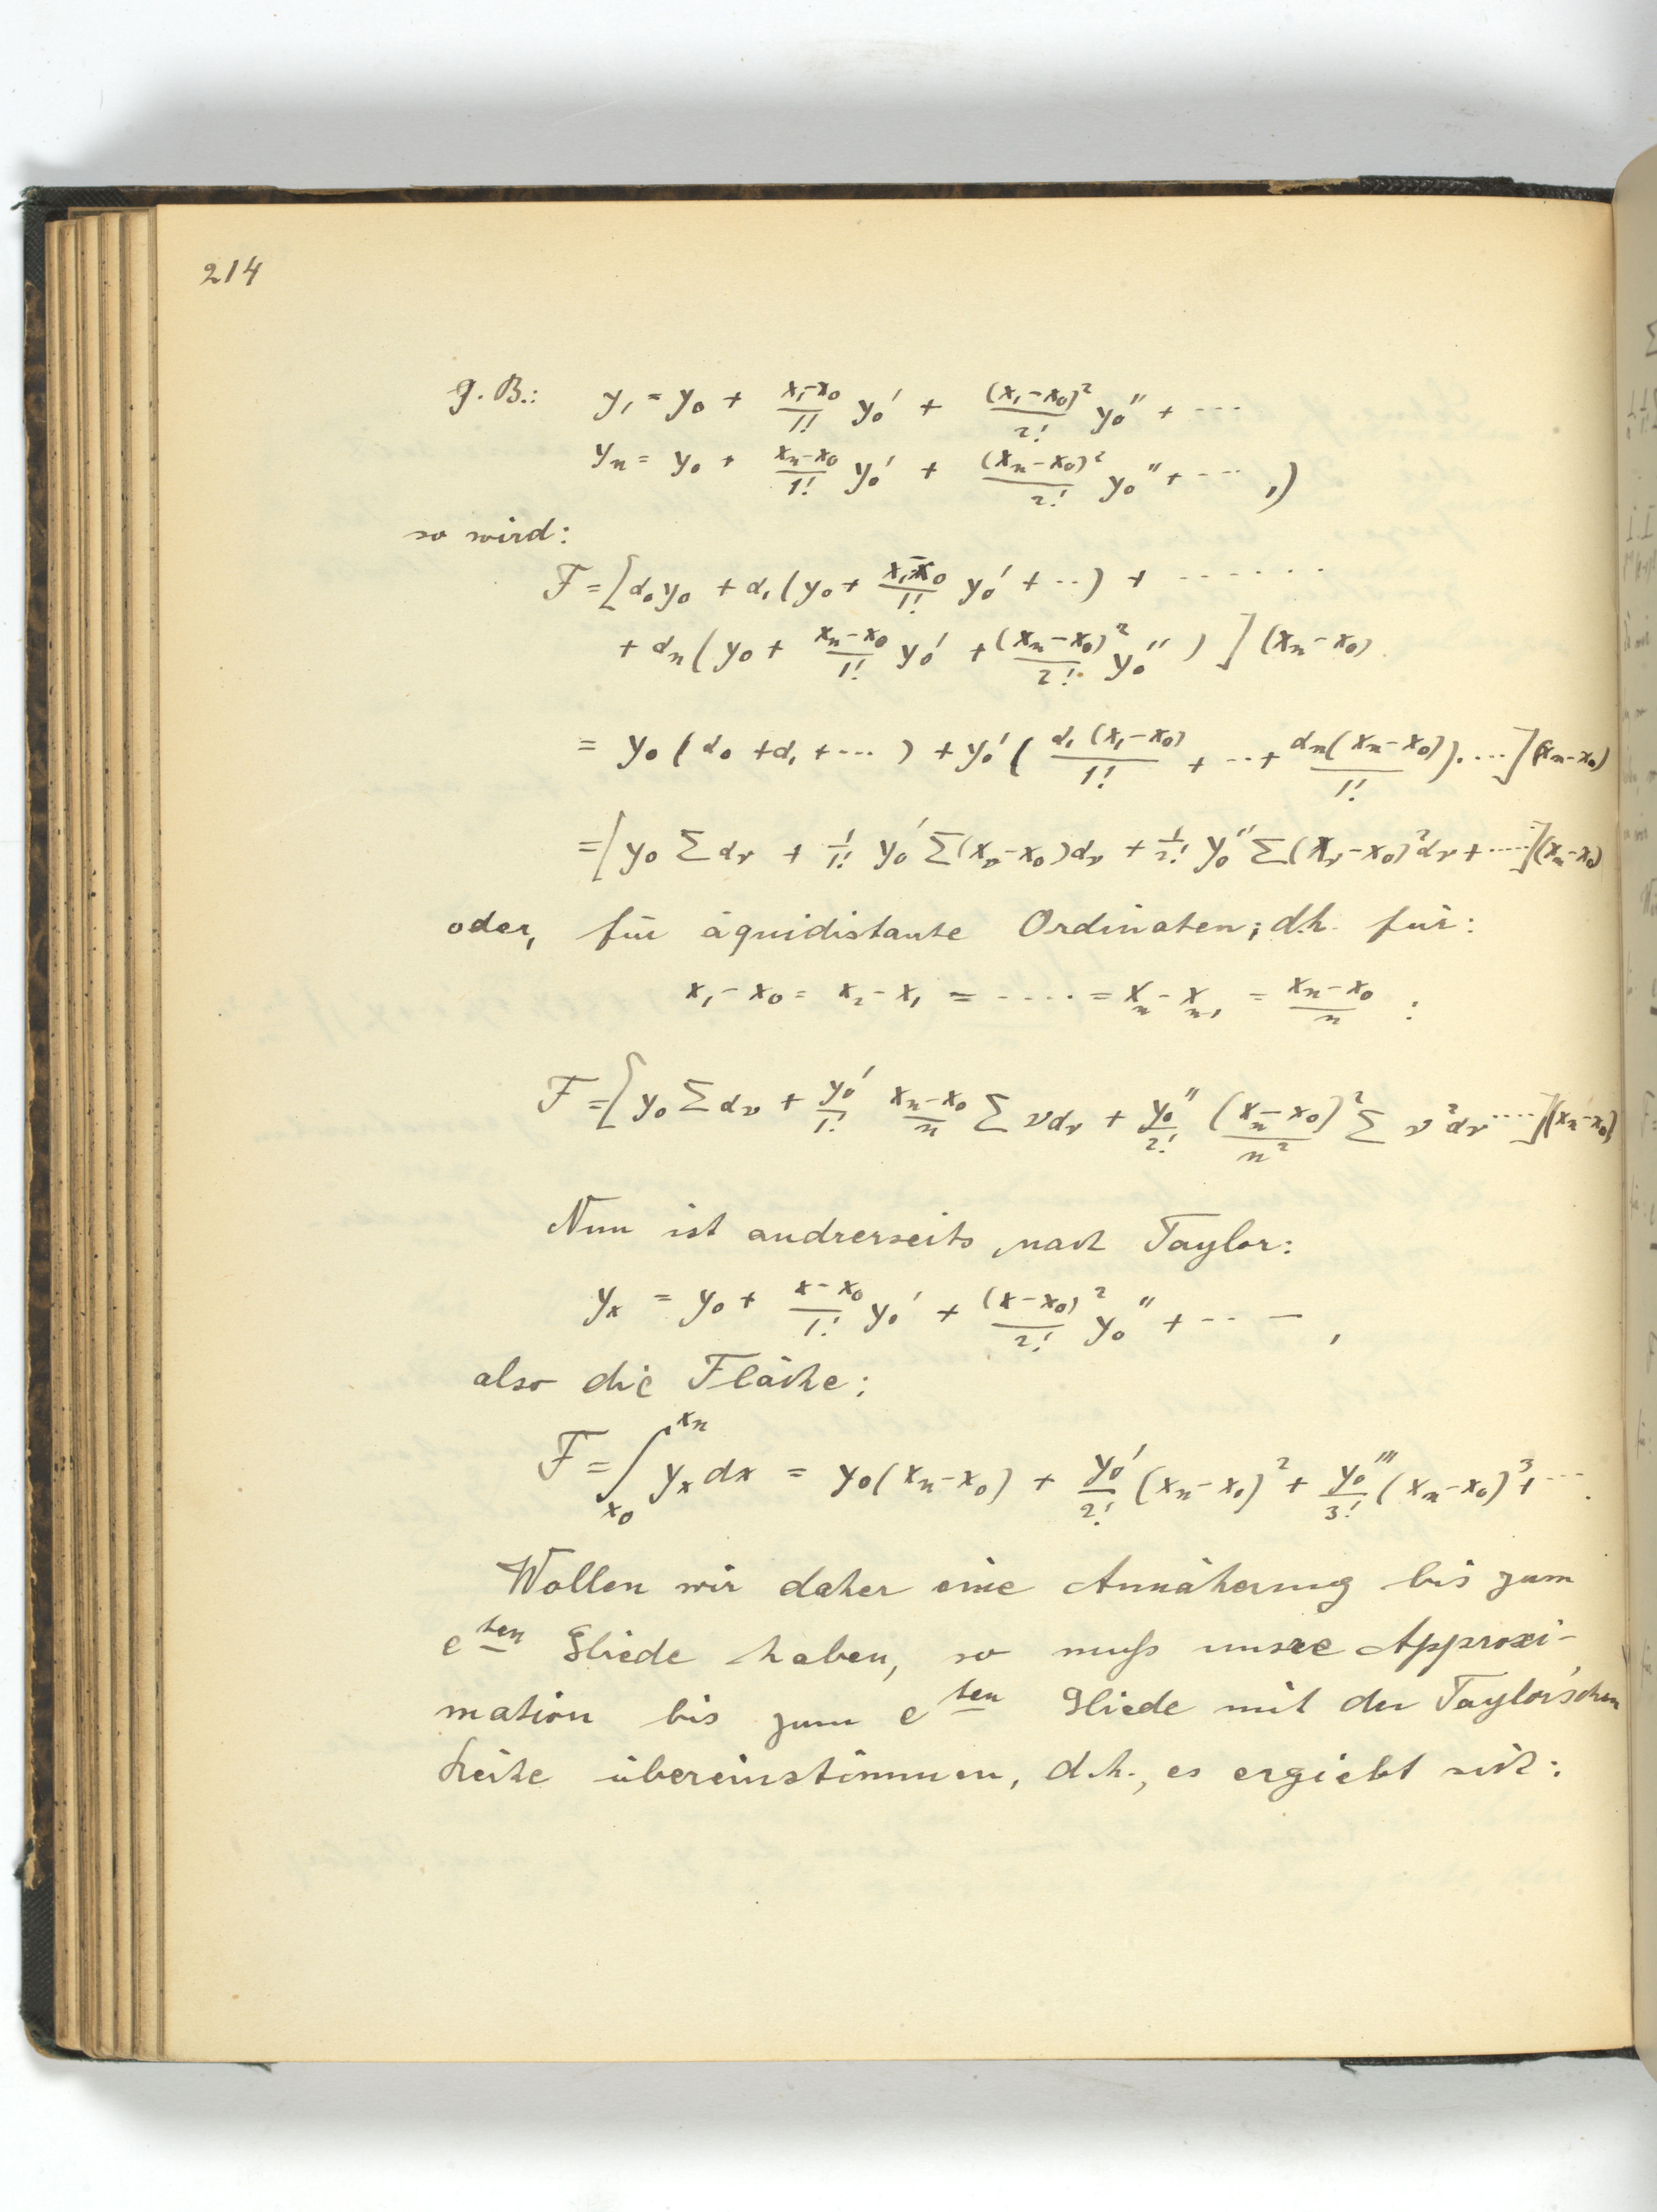 214
z. B.: y₁ = y₀ + (x₁-x₀)/1! y₀' + (x₁-x₀)²/2! y₀'' + ...
yₙ = y₀ + (xₙ-x₀)/1! y₀' + (xₙ-x₀)²/2! y₀'' + ... ,)
so wird:
F = [α₀y₀ + α₁(y₀ + (x₁-x₀)/1! y₀' + ..) + ......
+ αₙ(y₀ + (xₙ-x₀)/1! y₀' + (xₙ-x₀)²/2! y₀'' ) ] (xₙ-x₀)
= y₀ (α₀ + α₁ + ... ) + y₀' ( α₁(x₁-x₀)/1! + ... + αₙ(xₙ-x₀)/1! ). ...] (xₙ-x₀)
= [y₀ Σ αᵥ + 1/1! y₀' Σ(xᵥ-x₀)αᵥ + 1/2! y₀'' Σ(xᵥ-x₀)²αᵥ + .....](xₙ-x₀)
oder, für äquidistante Ordinaten; d.h. für:
x₁-x₀ = x₂-x₁ = .... = xₙ - xₙ₋₁ = (xₙ-x₀)/n :
F = [y₀ Σ αᵥ + y₀'/1! (xₙ-x₀)/n Σ ναᵥ + y₀''/2! (xₙ-x₀)²/n² Σ ν²αᵥ ....](xₙ-x₀)
Nun ist andrerseits, nach Taylor:
yₓ = y₀ + (x-x₀)/1! y₀' + (x-x₀)²/2! y₀'' + ... ,
also die Fläche:
F = ∫_{x₀}^{xₙ} yₓ dx = y₀(xₙ-x₀) + y₀'/2! (xₙ-x₀)² + y₀'''/3! (xₙ-x₀)³ + ... .
Wollen wir daher eine Annäherung bis zum
e ten Gliede haben, so muß unsre Approxi-
mation bis zum e ten Gliede mit der Taylor'schen
Reihe übereinstimmen, d.h., es ergiebt sich: